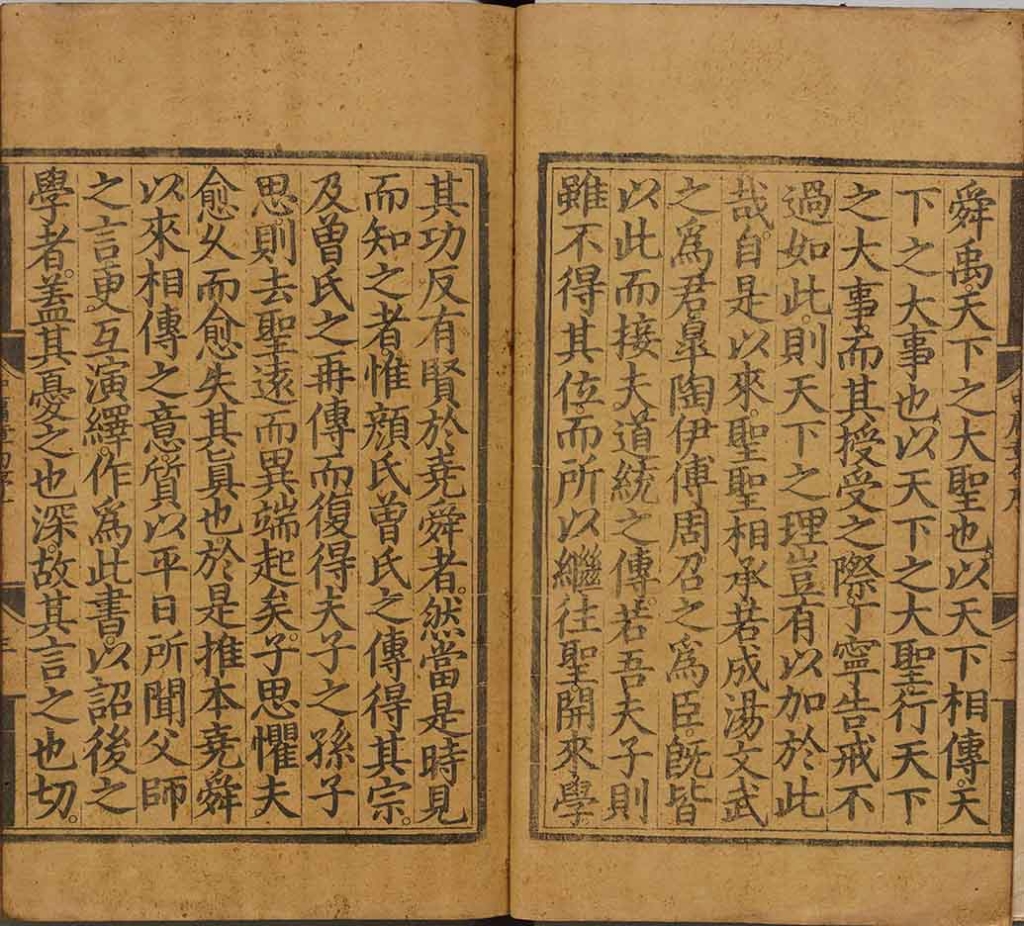 舜禹。天下之大聖也。以天下相傳。天
下之大事也。以天下之大聖行天下
之大事。而其授受之際。丁寧告戒。不
過如此。則天下之理。豈有以加於此
哉。自是以來。聖聖相承。若成湯文武
之爲君。皐陶伊傅周召之爲臣。旣皆
以此而接夫道統之傳。若吾夫子。則
雖不得其位。而所以繼往聖開來學
其功反有賢於堯舜者。然當是時。見
而知之者。惟顔氏曾氏之傳得其宗。
及曾氏之再傳。而復得夫子之孫子
思。則去聖遠而異端起矣。子思懼夫
愈久而愈失其眞也。於是推本堯舜
以來相傳之意。質以平日所聞父師
之言。更互演繹。作爲此書。以詔後之
學者。蓋其憂之也深。故其言之也切。